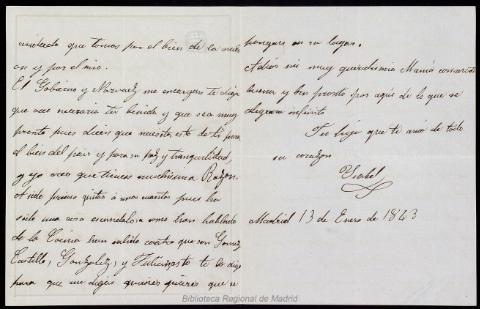 que tomas por el bien de la
on y por el mio.
El Gobierno y Narvaez me encargan te diga
que creo necesaria tu benida y que sea muy
pronto pues dicen que necesita este de ti para
el bien del pais y para su paz y tranquilidad,
y yo creo que tienen muchisima Razon.
sido preciso quitar á unos cuantos pues ha
sido una cosa escandalosa como han hablado
de la Cocina han salido cuatro que son Gomez
Castillo, Gonzalez, y te lo digo
para que me digas quienes quieres que se
pongan en su lugar.
Adios mi muy queridisima Mamá consérvate
buena y ben pronto por aquí de lo que se
alegrara infinito
Tu hija que te ama de todo
su corazon
Isabel
Madrid 13 de Enero de 1843
Biblioteca Regional de Madrid